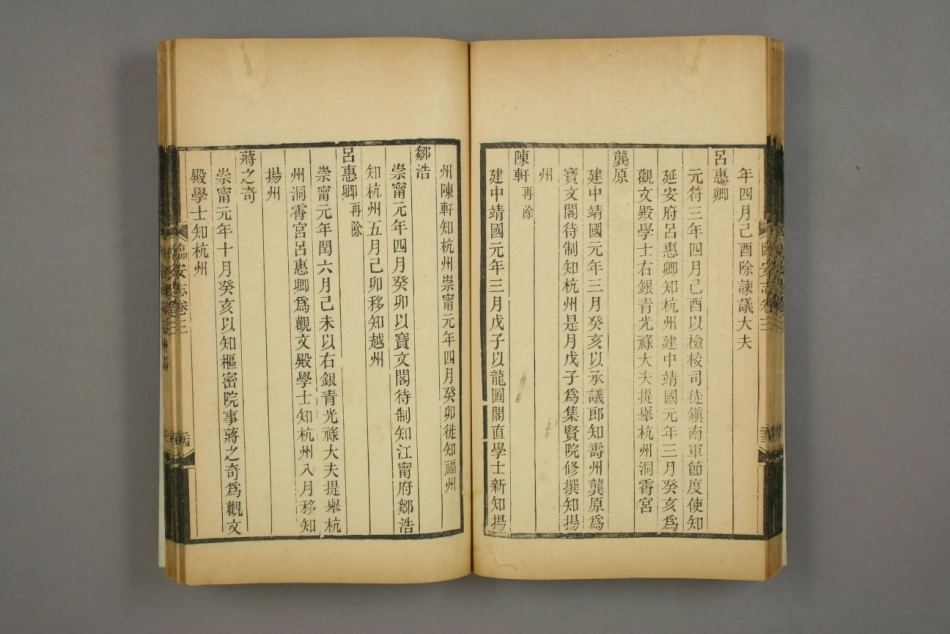 年四月己酉除諫議大夫
呂惠卿
元符三年四月己酉以檢校司徙鎮南軍節度使知
延安府呂惠卿知杭州建中靖國元年三月癸亥爲
觀文殿學士右銀青光祿大夫提舉杭州洞霄宮
龔原
建中靖國元年三月癸亥以承議郎知壽州龔原爲
寶文閣待制知杭州是月戊子爲集賢院修撰知揚
州
陳軒再除
建中靖國元年三月戊子以龍圖閣直學士新知揚
州陳軒知杭州崇甯元年四月癸卯徙知福州
鄒浩
崇甯元年四月癸卯以寶文閣待制知江甯府鄒浩
知杭州五月己卯移知越州
呂惠卿再除
崇甯元年閏六月己未以右銀青光祿大夫提舉杭
州洞霄宮呂惠卿爲觀文殿學士知杭州八月移知
揚州
蔣之奇
崇甯元年十月癸亥以知樞密院事蔣之奇爲觀文
殿學士知杭州
臨安志卷三